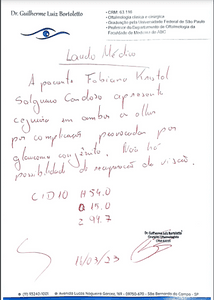 Dr. Guilherme Luiz Bortoletto
• CRM: 63 116
• Oftalmologia clínica e cirúrgica
• Graduação pela Universidade Federal de São Paulo
• Professor do Departamento de Oftalmologia da Faculdade de Medicina do ABC
Laudo Médico
A paciente Fabiana Kristal
Salgueiro Cardoso apresenta
cegueira em ambos os olhos
por complicações provocadas por
glaucoma congênito. Não há
possibilidade de recuperação da visão.
CID10 H54.0
Q 15.0
Z 99.7
11/03/23
Dr. Guilherme Luiz Bortoletto
• Avenida Lucas Nogueira Garcez
São Bernardo do Campo - SP